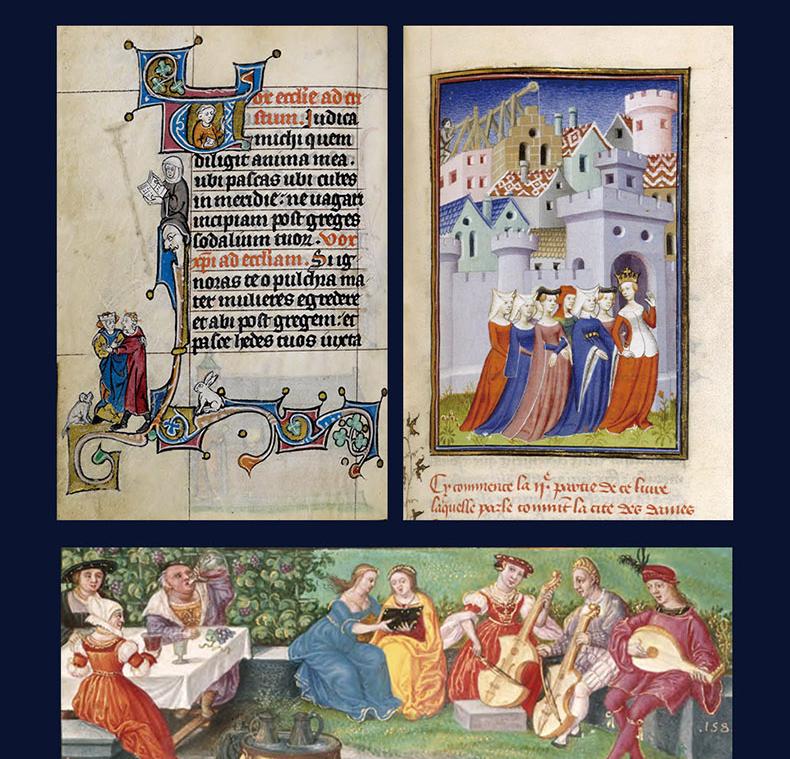 Vox ecclie ad cri
stum. Iudica
michi quem
diligit anima mea.
ubi pascas ubi cubes
in meridie: ne uagari
incipiam post greges
sodalium tuor. Vox
xpi ad eccliam. Si ig
noras te o pulchra in
ter mulieres egredere
et abi post gregem: et
pasce hedos tuos iuxta
Cy commence la IIe partie de ce liure
laquelle parle comment la cite des dames
.158